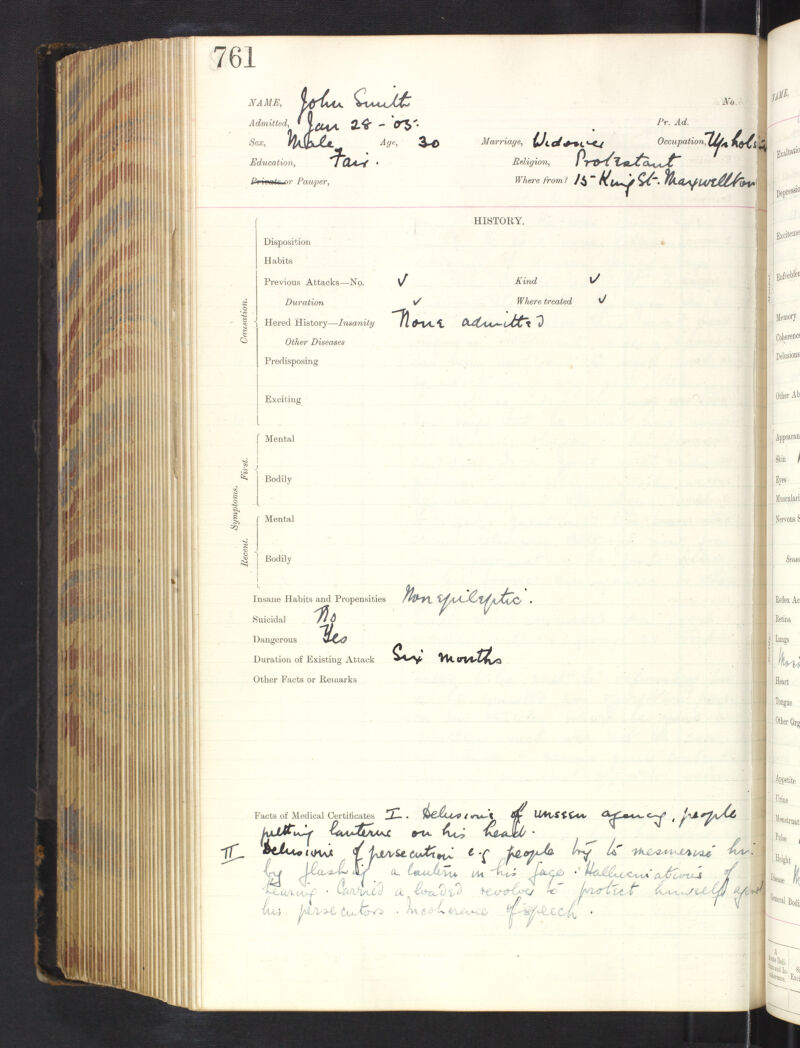 761
NAME, John Smith No.
Admitted, Jan 28 - '05. Pr. Ad.
Sex, Male Age, 30 Marriage, Widower Occupation, Uphols
Education, Fair. Religion, Protestant
Private or Pauper, Where from? 15 King St. Maxwellton
HISTORY.
Causation.
Disposition
Habits
Previous Attacks—No. ✓ Kind ✓
Duration ✓ Where treated ✓
Hered History—Insanity None admitted
Other Diseases
Predisposing
Exciting
Symptoms.
First.
Mental
Bodily
Recent.
Mental
Bodily
Insane Habits and Propensities Non epileptic.
Suicidal No
Dangerous Yes
Duration of Existing Attack Six months
Other Facts or Remarks
Facts of Medical Certificates I. Delusions of unseen agency, people
putting lanterns on his head.
II Delusions of persecution e.g people try to mesmerise him
by flashing a lantern in his face. Hallucinations of
hearing. Carried a loaded revolver to protect himself against
his persecutors. Incoherence of speech.
NAME,
Exaltatio
Depressio
Exciteme
Enfeeblem
Memory
Coherence
Delusions
Other Ab
Appearan
Skin
Eyes
Musculari
Nervous S
Sens
Reflex Ac
Retina
Lungs
Heart
Tongue
Other Org
Appetite
Urine
Menstruat
Pulse
Height
Disease
General Bodi